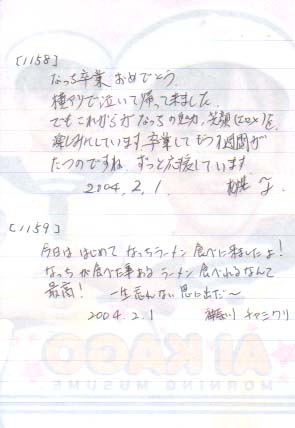 [1158]
なっち卒業おめでとう。
横アリで泣いて帰って来ました。
でもこれからがなっちの 笑顔 を
楽しみにしています。卒業してもう1週間が
たつのですね。ずっと応援しています
2004.2.1.
[1159]
今日ははじめてなっちラーメン食べに来ましたよ!
なっちが食べた事あるラーメン食べれるなんて
最高! 一生忘んない思い出だ〜
2004.2.1 神奈川 チャミクリ
AI KAGO
MORNING MUSUME